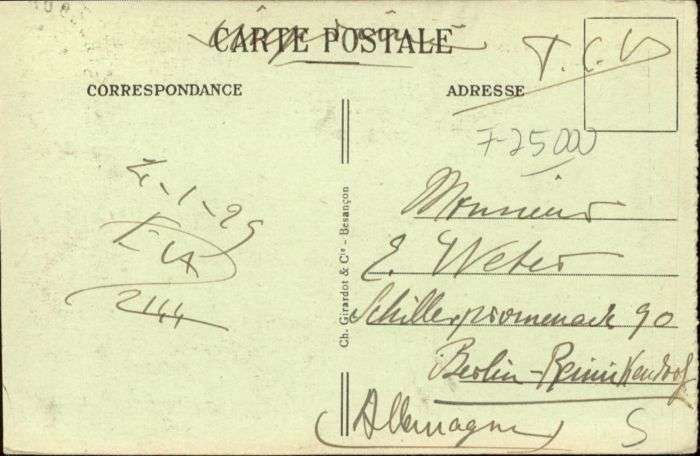 CARTE POSTALE
T.C.V
CORRESPONDANCE
ADRESSE
7-25000
4-1-29
2144
Ch. Girardot & Cie - Besançon
Monsieur
E. Weber
Schillerpromenade 90
Berlin-Reinickendorf
Allemagne
S